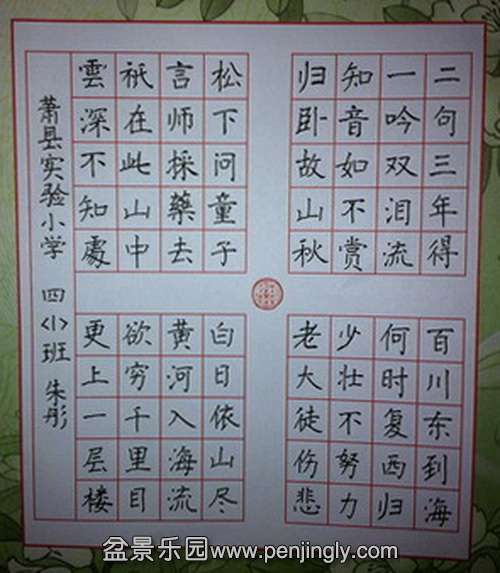 二句三年得
一吟双泪流
知音如不赏
归卧故山秋
松下问童子
言师採藥去
祇在此山中
雲深不知處
百川东到海
何时复西归
少壮不努力
老大徒伤悲
白日依山尽
黄河入海流
欲穷千里目
更上一层楼
萧县实验小学 四〈1〉班 朱彤
盆景乐园www.penjingly.com